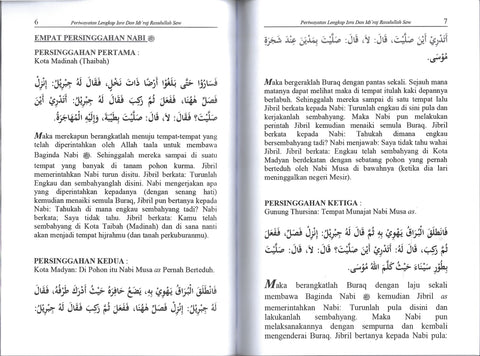 6 Periwayatan Lengkap Isra Dan Mi'raj Rasulullah Saw
EMPAT PERSINGGAHAN NABI ﷺ
PERSINGGAHAN PERTAMA :
Kota Madinah (Thaibah)
فَسَارُوْا حَتَّى بَلَغُوْا أَرْضًا ذَاتَ نَخْلٍ، فَقَالَ لَهُ جِبْرِيْلُ: اِنْزِلْ
فَصَلِّ هٰهُنَا، فَفَعَلَ ثُمَّ رَكِبَ فَقَالَ لَهُ جِبْرِيْلُ: أَتَدْرِيْ أَيْنَ
صَلَّيْتَ؟ قَالَ: لاَ، قَالَ: صَلَّيْتَ بِطَيْبَةَ، وَإِلَيْهَا الْمُهَاجَرَةُ.
Maka merekapun berangkatlah menuju tempat-tempat
yang telah diperintahkan oleh Allah taala untuk membawa
Baginda Nabi ﷺ. Sehinggalah mereka sampai di suatu
tempat yang banyak di tanami pohon kurma. Jibril
memerintahkan Nabi turun disitu. Jibril berkata: Turunlah
Engkau dan sembahyanglah disini. Nabi mengerjakan apa
yang diperintahkan kepadanya (dengan senang hati)
kemudian menaiki semula Buraq, Jibril pun bertanya kepada
Nabi: Tahukah di mana engkau sembahyang tadi? Nabi
berkata; Saya tidak tahu. Jibril berkata: Kamu telah
sembahyang di Kota Taibah (Madinah) dan di sana nanti
akan menjadi tempat hijrahmu (dan tanah perkuburanmu).
PERSINGGAHAN KEDUA :
Kota Madyan: Di Pohon itu Nabi Musa as Pernah Berteduh.
فَانْطَلَقَ الْبُرَاقُ يَهْوِيْ بِهِ، يَضَعُ حَافِرَهُ حَيْثُ أَدْرَكَ طَرْفُهُ، فَقَالَ
لَهُ جِبْرِيْلُ: اِنْزِلْ فَصَلِّ هٰهُنَا، فَفَعَلَ ثُمَّ رَكِبَ، فَقَالَ لَهُ جِبْرِيْلُ:
Periwayatan Lengkap Isra Dan Mi'raj Rasulullah Saw 7
أَتَدْرِيْ أَيْنَ صَلَّيْتَ، قَالَ: لاَ، قَالَ: صَلَّيْتَ بِمَدْيَنَ عِنْدَ شَجَرَةِ
مُوْسَى.
Maka bergeraklah Buraq dengan pantas sekali. Sejauh mana
matanya dapat melihat maka di tempat itulah kaki depannya
berlabuh. Sehinggalah mereka sampai di satu tempat lalu
Jibril berkata kepada Nabi: Turunlah engkau di sini pula dan
kerjakanlah sembahyang. Maka Nabi pun melakukan
perintah Jibril kemudian menaiki semula Buraq. Jibril
berkata kepada Nabi: Tahukah dimana engkau
bersembahyang tadi? Nabi menjawab: Saya tidak tahu wahai
Jibril. Jibril berkata: Engkau telah sembahyang di Kota
Madyan berdekatan dengan sebatang pohon yang pernah
berteduh oleh Nabi Musa di bawahnya (ketika dia lari
meninggalkan negeri Mesir).
PERSINGGAHAN KETIGA :
Gunung Thursina: Tempat Munajat Nabi Musa as.
فَانْطَلَقَ الْبُرَاقُ يَهْوِيْ بِهِ، ثُمَّ قَالَ لَهُ جِبْرِيْلُ: اِنْزِلْ فَصَلِّ، فَفَعَلَ
ثُمَّ رَكِبَ، فَقَالَ لَهُ: أَتَدْرِيْ أَيْنَ صَلَّيْتَ؟ قَالَ: لاَ، قَالَ: صَلَّيْتَ
بِطُوْرِ سَيْنَاءَ حَيْثُ كَلَّمَ اللهُ مُوْسَى.
Maka berangkatlah Buraq dengan laju sekali
membawa Baginda Nabi ﷺ kemudian Jibril as
memerintahkan Nabi: Turunlah pula disini dan
lakukanlah sembahyang. Maka Nabi pun
melaksanakannya dengan sempurna dan kembali
mengenderai Buraq. Jibril bertanya kepada Nabi pula: